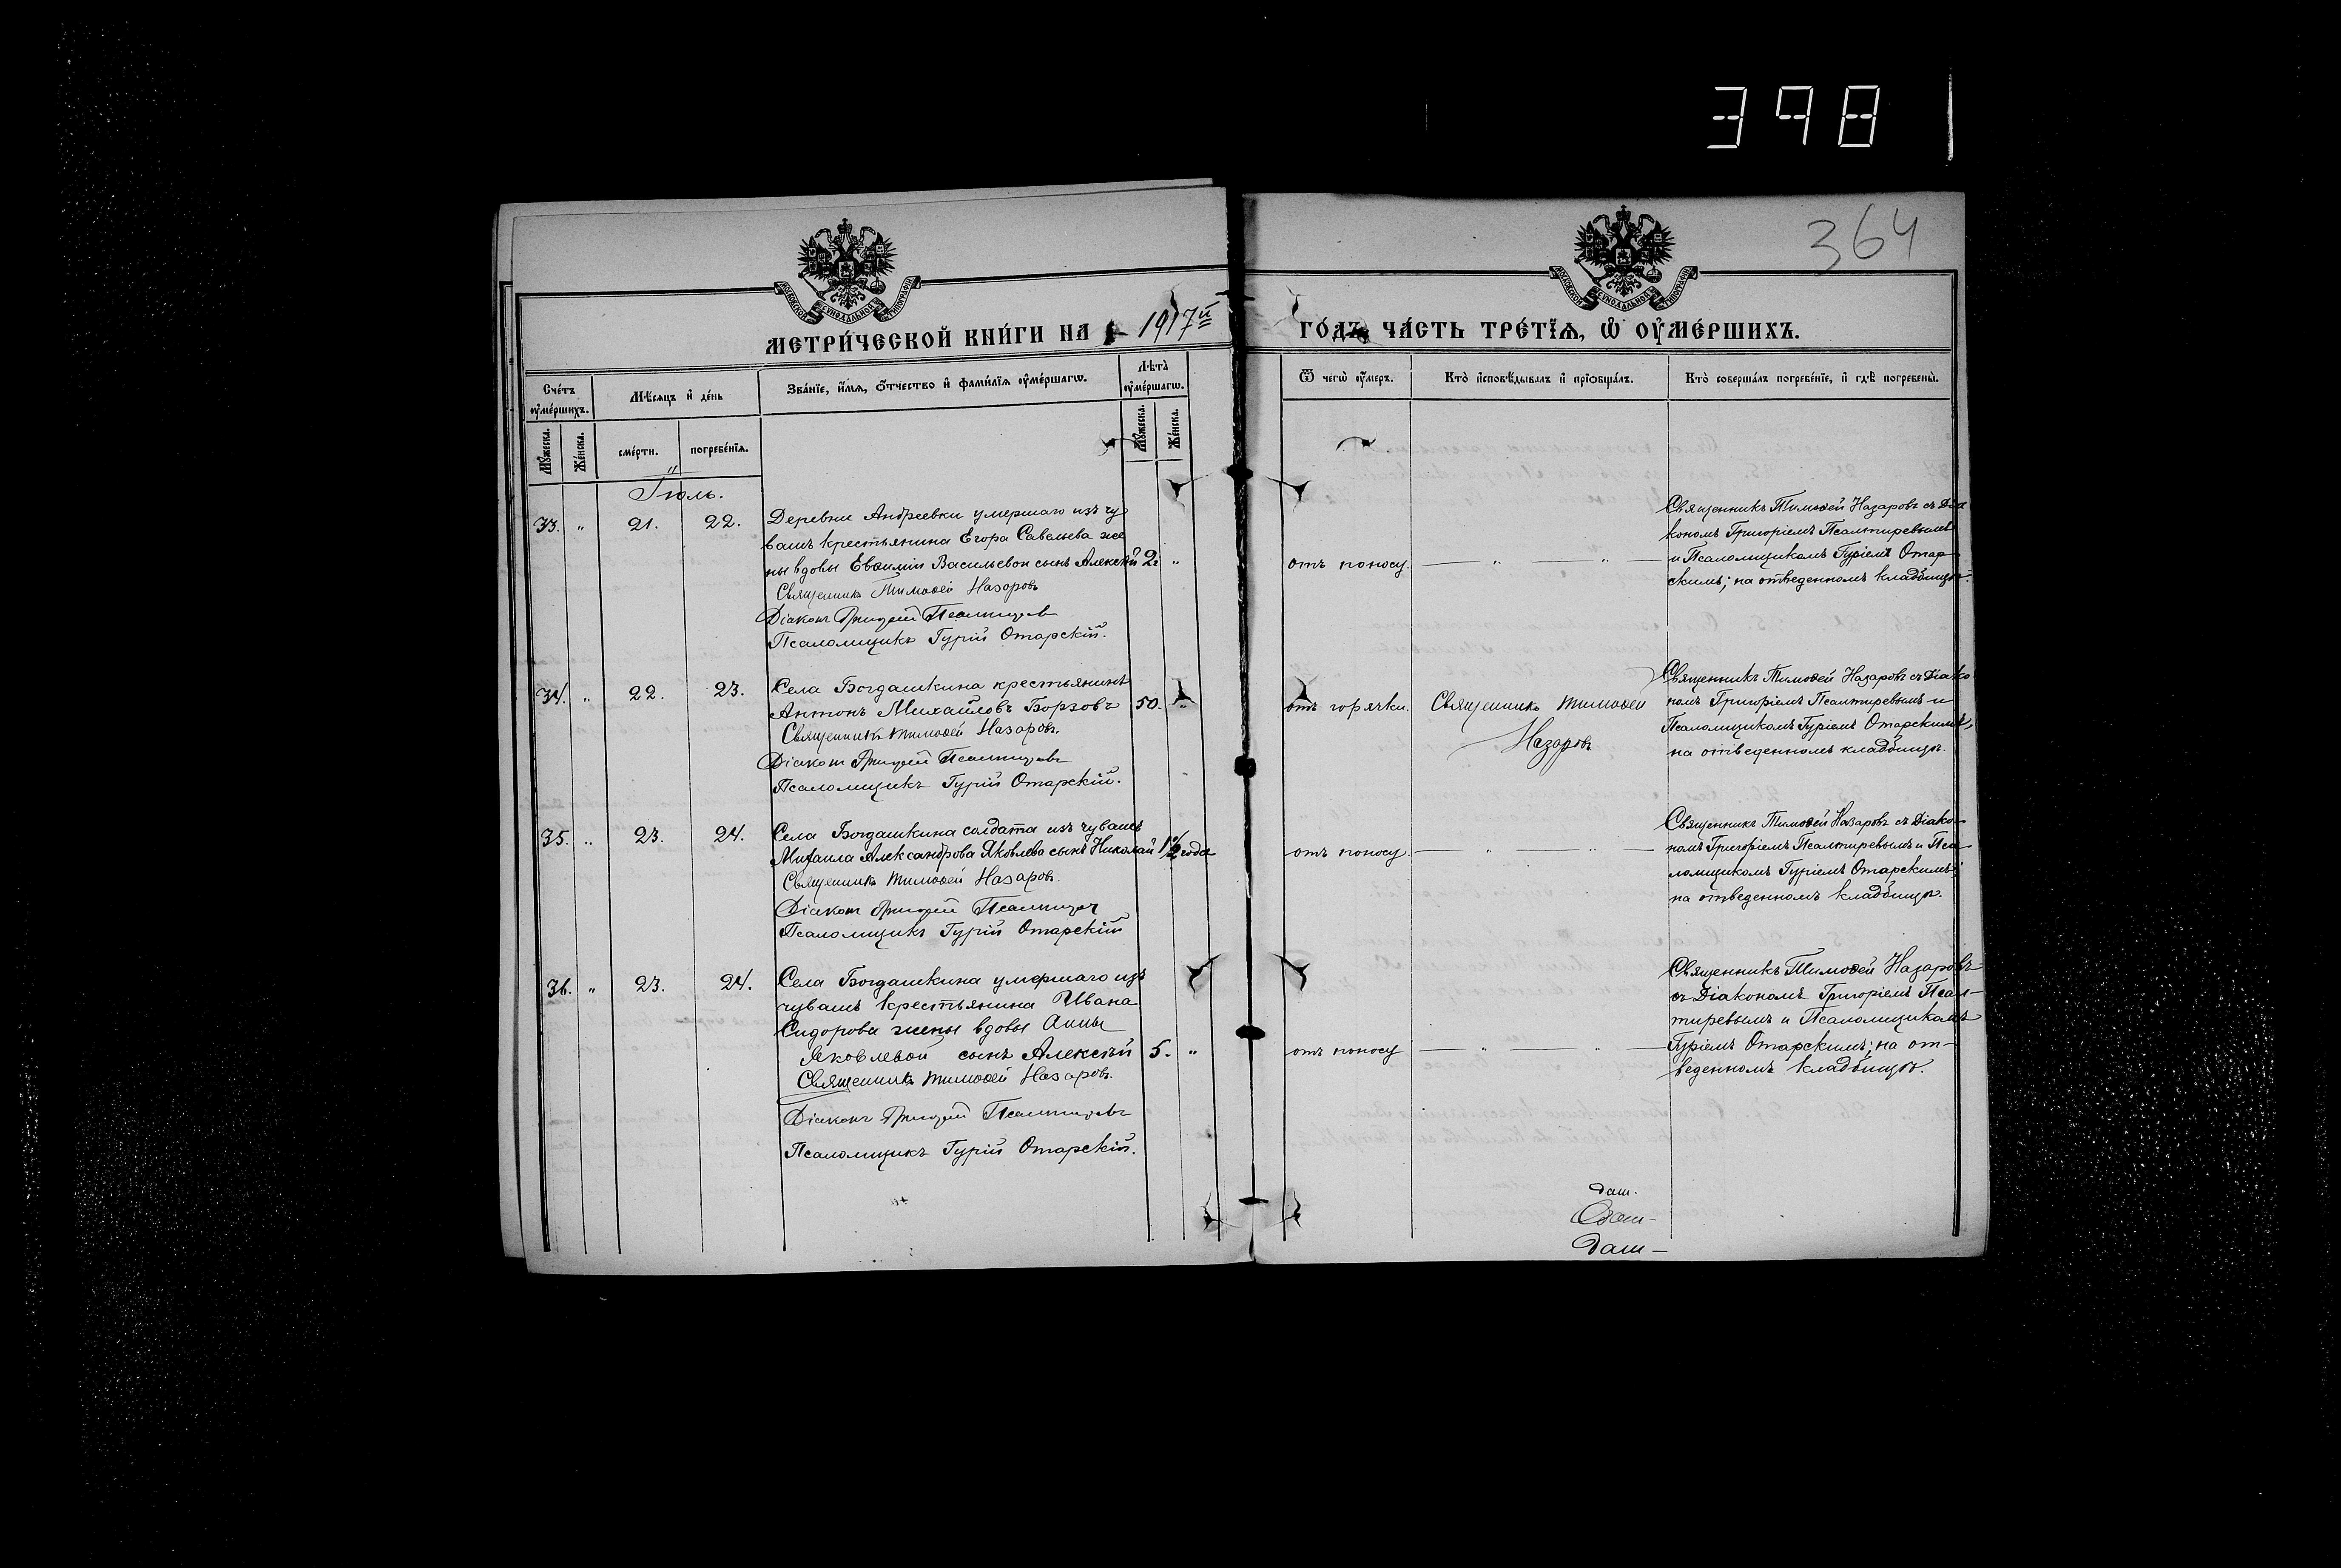 398
364
МОСКОВСКОЙ СѴНОДАЛЬНОЙ ТИПОГРАФІИ
МОСКОВСКОЙ СѴНОДАЛЬНОЙ ТИПОГРАФІИ
МЕТРИ́ЧЕСКОЙ КНИ́ГИ НА 1917й
ГО́ДЪ ЧА́СТЬ ТРЕ́ТЇѦ, Ѡ҆ ОУ҆МЕ́РШИХЪ.
Сче́тъ оу҆ме́ршихъ.
Мꙋ́жеска.
Же́нска.
Мѣ́сяцъ и҆ де́нь
сме́рти.
погребе́нїѧ.
Зва́нїе, и҆́мѧ, ѻ҆́тчество и҆ фами́лїѧ оу҆ме́ршагѡ.
Лѣ́та оу҆ме́ршагѡ.
Мꙋ́жеска.
Же́нска.
Ѿ чегѡ̀ оу҆́меръ.
Кто̀ и҆сповѣ́дывалъ и҆ прїѡбща́лъ.
Кто̀ соверша́лъ погребе́нїе, и҆ гдѣ̀ погребены̀.
Іюль.
33. " 21. 22.
Деревни Андреевки умершаго изъ чу
вашъ крестьянина Егора Савельева же
ны вдовы Евѳиміи Васильевой сынъ Алексѣй 2. "
Священникъ Тимоѳей Назаровъ
Діаконъ Григорій Псалтиревъ
Псаломщикъ Гурій Отарскій.
отъ поносу. — " — " —
Священникъ Тимоѳей Назаровъ съ Діа
кономъ Григоріемъ Псалтиревымъ
и Псаломщикомъ Гуріемъ Отар-
скимъ; на отведенномъ кладбищѣ.
34. " 22. 23.
Села Богдашкина крестьянинъ
Антонъ Михайловъ Борзовъ 50. "
Священникъ Тимоѳей Назаровъ.
Діаконъ Григорій Псалтиревъ
Псаломщикъ Гурій Отарскій.
отъ горячки.
Священникъ Тимоѳей
Назаровъ
Священникъ Тимоѳей Назаровъ съ Діако
номъ Григоріемъ Псалтиревымъ и
Псаломщикомъ Гуріемъ Отарскимъ,
на отведенномъ кладбищѣ.
35. " 23. 24.
Села Богдашкина солдата изъ чувашъ
Михаила Александрова Яковлева сынъ Николай 1 1/2 года
Священникъ Тимоѳей Назаровъ.
Діаконъ Григорій Псалтиревъ
Псаломщикъ Гурій Отарскій
отъ поносу. — " — " —
Священникъ Тимоѳей Назаровъ съ Діако-
номъ Григоріемъ Псалтиревымъ и Пса
ломщикомъ Гуріемъ Отарскимъ;
на отведенномъ кладбищѣ.
36. " 23. 24.
Села Богдашкина умершаго изъ
чувашъ крестьянина Ивана
Сидорова жены вдовы Анны
Яковлевой сынъ Алексѣй 5. "
Священникъ Тимоѳей Назаровъ.
Діаконъ Григорій Псалтиревъ
Псаломщикъ Гурій Отарскій.
отъ поносу — " — " —
Священникъ Тимоѳей Назаровъ
съ Діакономъ Григоріемъ Псал-
тиревымъ и Псаломщикомъ
Гуріемъ Отарскимъ; на от-
веденномъ кладбищѣ.